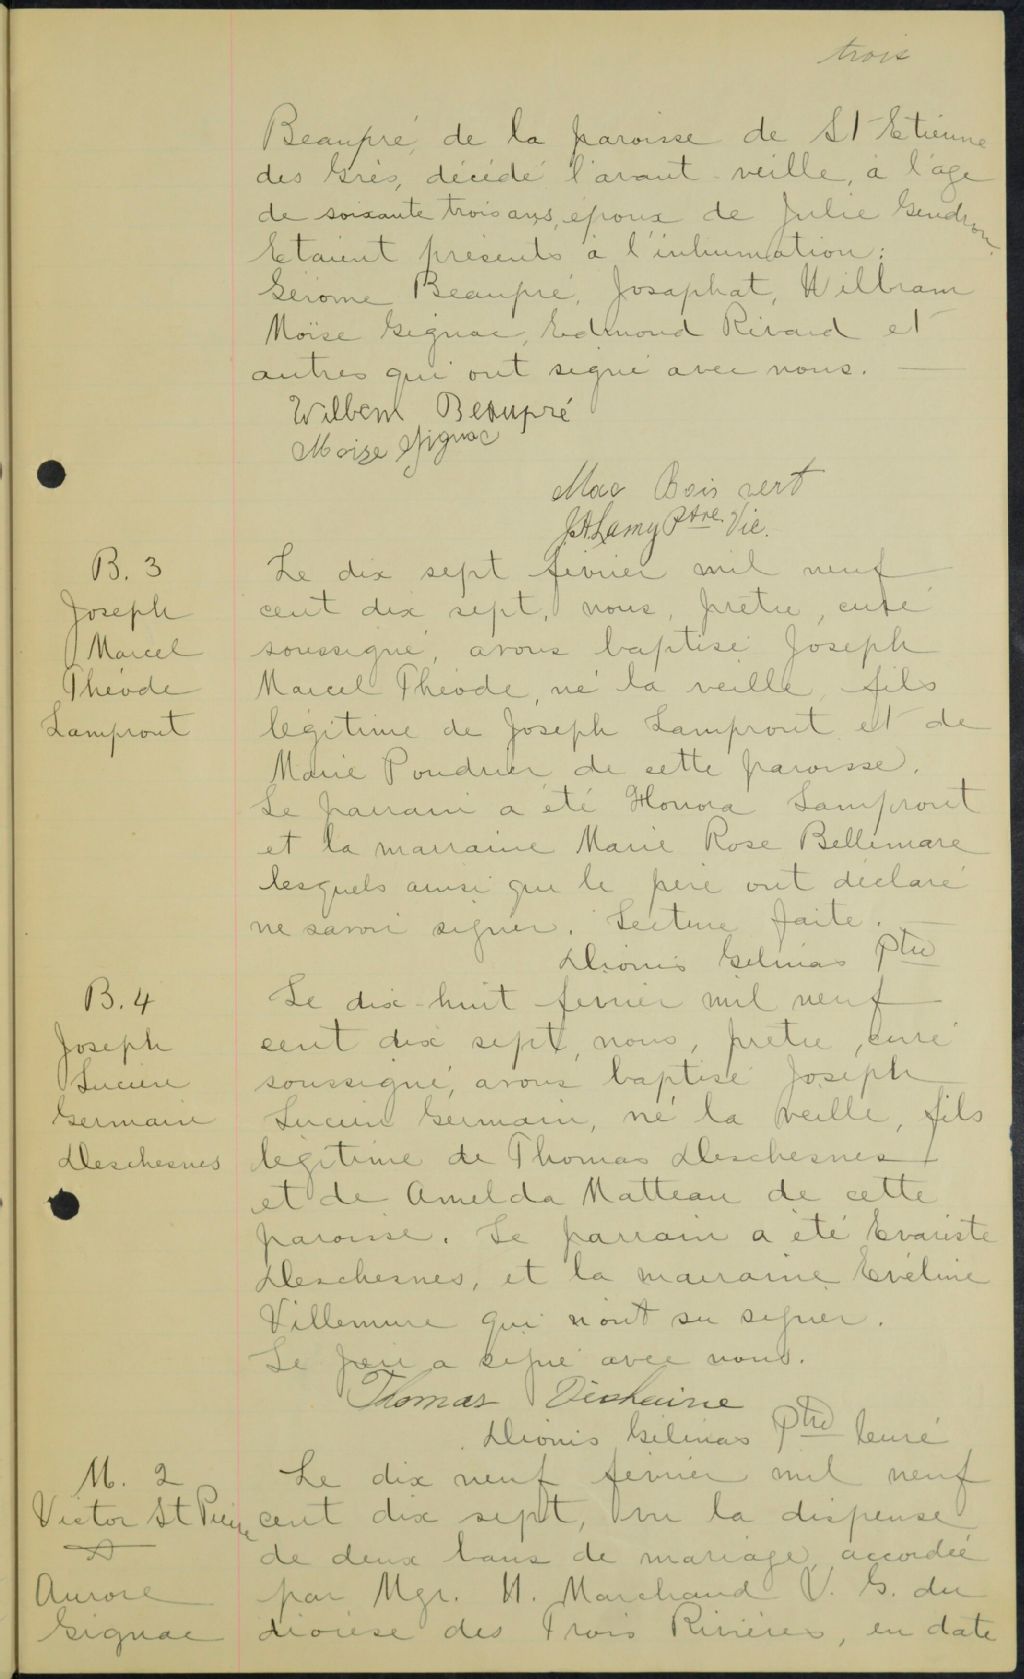 trois
Beaupré, de la paroisse de St Etienne
des Grès, décédé l'avant-veille, à l'âge
de soixante trois ans, époux de Julie Gendron.
Etaient présents à l'inhumation:
Gérome Beaupré, Josaphat, Willbram
Moïse Gignac, Edmond Rivard et
autres qui ont signé avec nous. —
Wilbem Beaupré
Moise Gignac
Mac Bois vert
JHLamy Ptre Vic.
B. 3
Joseph
Marcel
Théode
Lamprout
Le dix sept février mil neuf
cent dix sept, nous, prêtre, curé
soussigné, avons baptisé Joseph
Marcel Théode, né la veille, fils
légitime de Joseph Lamprout et de
Marie Poudrier de cette paroisse.
Le parrain a été Honora Lamprout
et la marraine Marie Rose Bellemare
lesquels ainsi que le père ont déclaré
ne savoir signer. Lecture faite. —
Dionis Gelinas Ptre
B. 4
Joseph
Lucien
Germain
Deschesnes
Le dix-huit fevrier mil neuf
cent dix sept, nous, prêtre, curé
soussigné, avons baptisé Joseph
Lucien Germain, né la veille, fils
légitime de Thomas Deschesnes
et de Amelda Matteau de cette
paroisse. Le parrain a été Evariste
Deschesnes, et la marraine Evéline
Villemure qui n'ont su signer.
Le père a signé avec nous.
Thomas Deshaine
Dionis Gélinas Ptre Curé
M. 2
Victor St Pierre
&
Aurore
Gignac
Le dix neuf février mil neuf
cent dix sept, vu la dispense
de deux bans de mariage, accordée
par Mgr. H. Marchand V. G. du
diocèse des Trois Rivières, en date